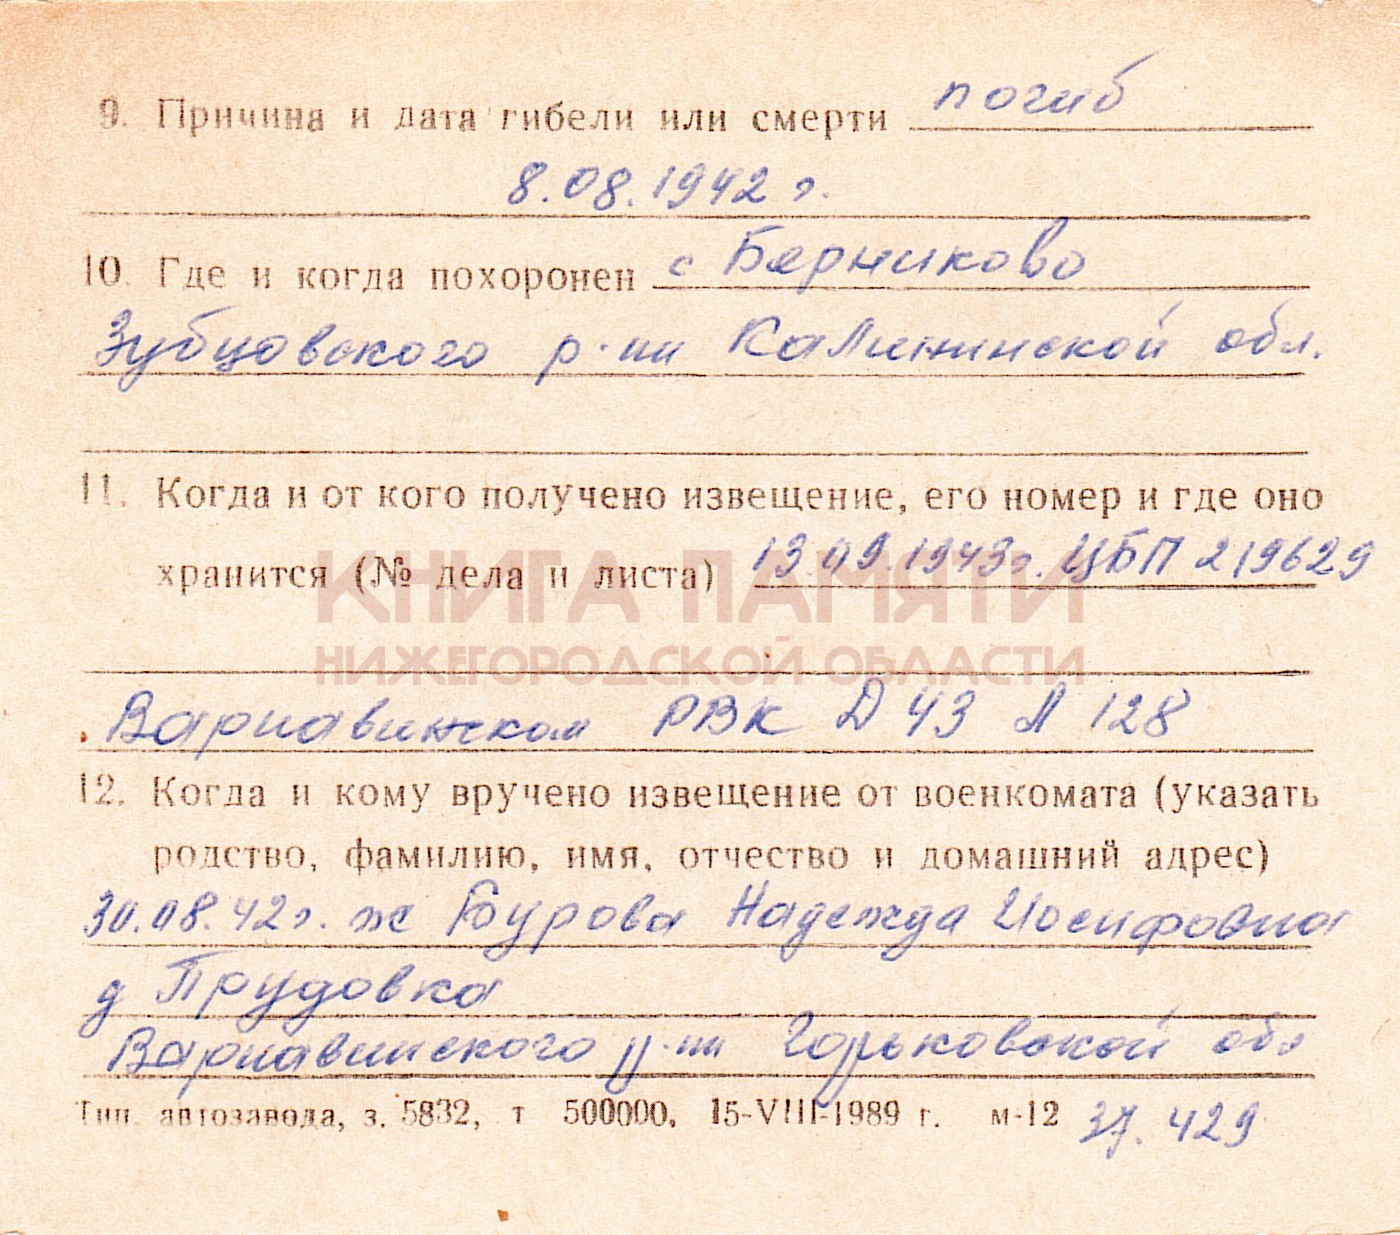 9. Причина и дата гибели или смерти погиб
8.08.1942 г.
10. Где и когда похоронен с Берниково
Зубцовского р-на Калининской обл.
11. Когда и от кого получено извещение, его номер и где оно
хранится (№ дела и листа) 13.09.1943г. ЦБП 219629
КНИГА ПАМЯТИ
НИЖЕГОРОДСКОЙ ОБЛАСТИ
Варнавинском РВК Д 43 Л 128
12. Когда и кому вручено извещение от военкомата (указать
родство, фамилию, имя, отчество и домашний адрес)
30.08.42г. ж Бурова Надежда Иосифовна
д Прудовка
Варнавинского р-на Горьковской обл
Тип. автозавода, з. 5832, т 500000, 15-VIII-1989 г. м-12 37. 429